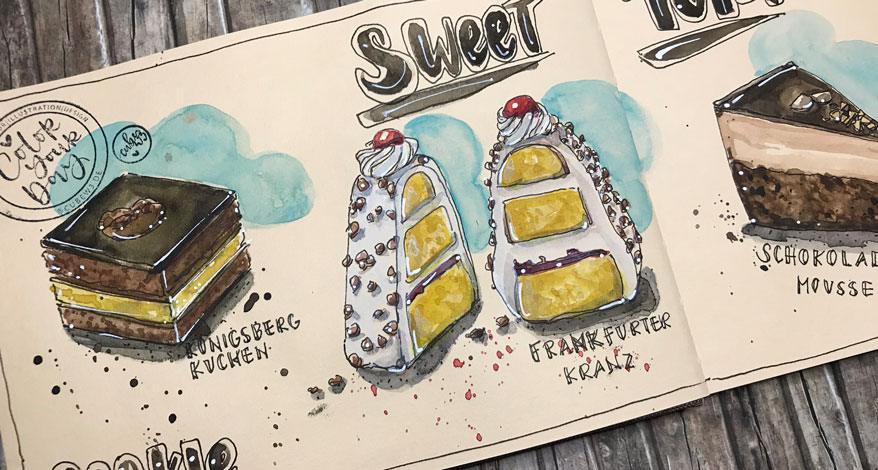 SWEET
COLOR
YOUR
DAY
CUBEW3.DE
KÖNIGSBERG
KUCHEN
FRANKFURTER
KRANZ
SCHOKOLAD
MOUSSE
cookie